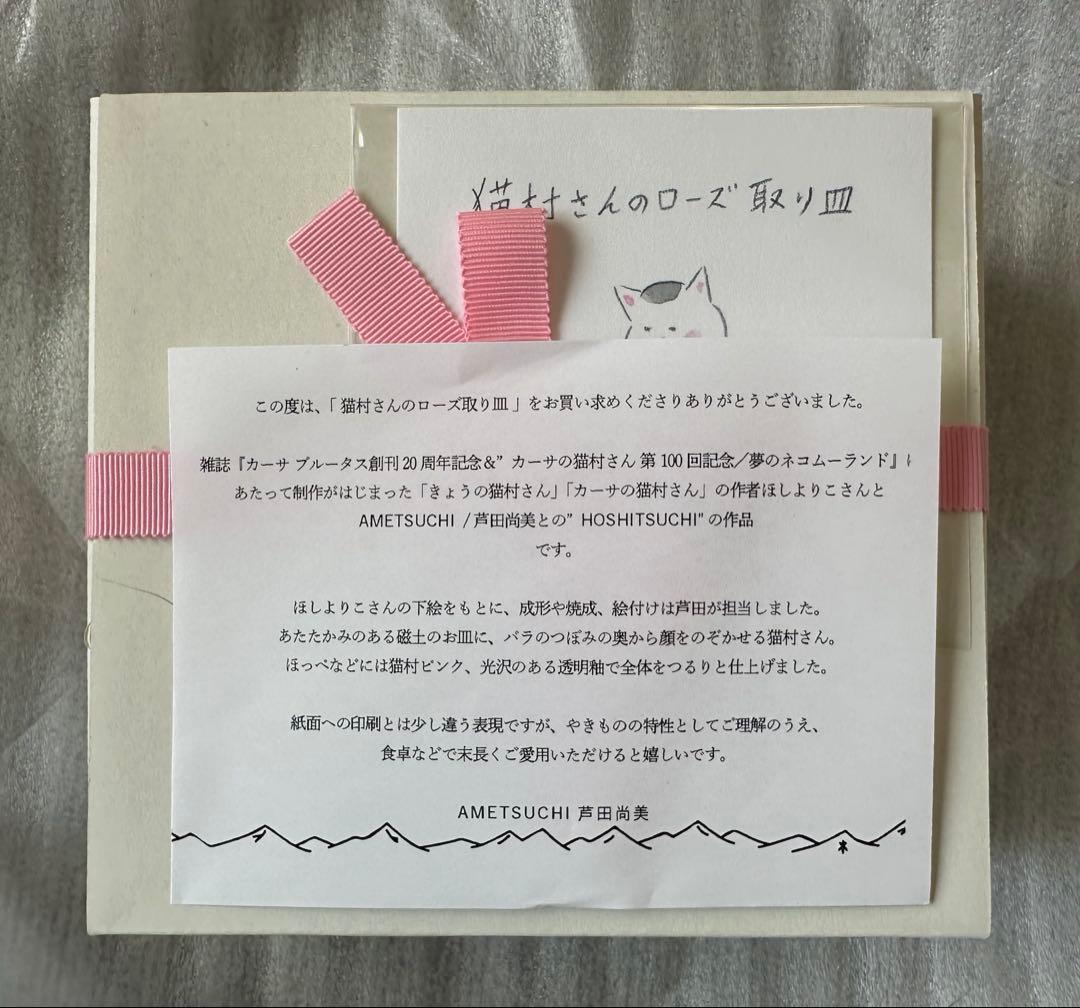 猫村さんのローズ取り皿
この度は、「猫村さんのローズ取り皿」をお買い求めくださりありがとうございました。
雑誌『カーサ ブルータス創刊20周年記念&”カーサの猫村さん 第100回記念／夢のネコムーランド』に
あたって制作がはじまった「きょうの猫村さん」「カーサの猫村さん」の作者ほしよりこさんと
AMETSUCHI /芦田尚美との” HOSHITSUCHI" の作品
です。
ほしよりこさんの下絵をもとに、成形や焼成、絵付けは芦田が担当しました。
あたたかみのある磁土のお皿に、バラのつぼみの奥から顔をのぞかせる猫村さん。
ほっぺなどには猫村ピンク、光沢のある透明釉で全体をつるりと仕上げました。
紙面への印刷とは少し違う表現ですが、やきものの特性としてご理解のうえ、
食卓などで末長くご愛用いただけると嬉しいです。
AMETSUCHI 芦田尚美